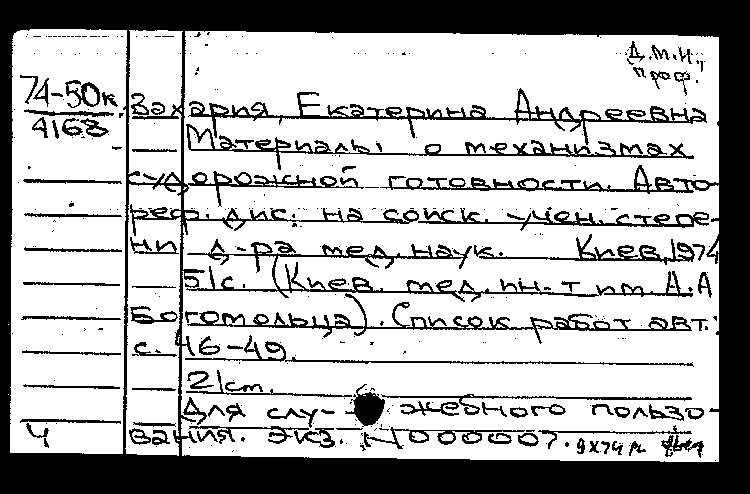 Д.М.Н.,
проф.
74-50к
4168
Захария, Екатерина Андреевна.
Материалы о механизмах
судорожной готовности. Авто-
реф. дис. на соиск. учен. степе-
ни д-ра мед. наук. Киев, 1974
51с. (Киев. мед. ин-т им. А.А
Богомольца). Список работ авт.:
с. 46-49.
21cm.
Для слу- жебного пользо-
вания. экз. N000007.
Ч